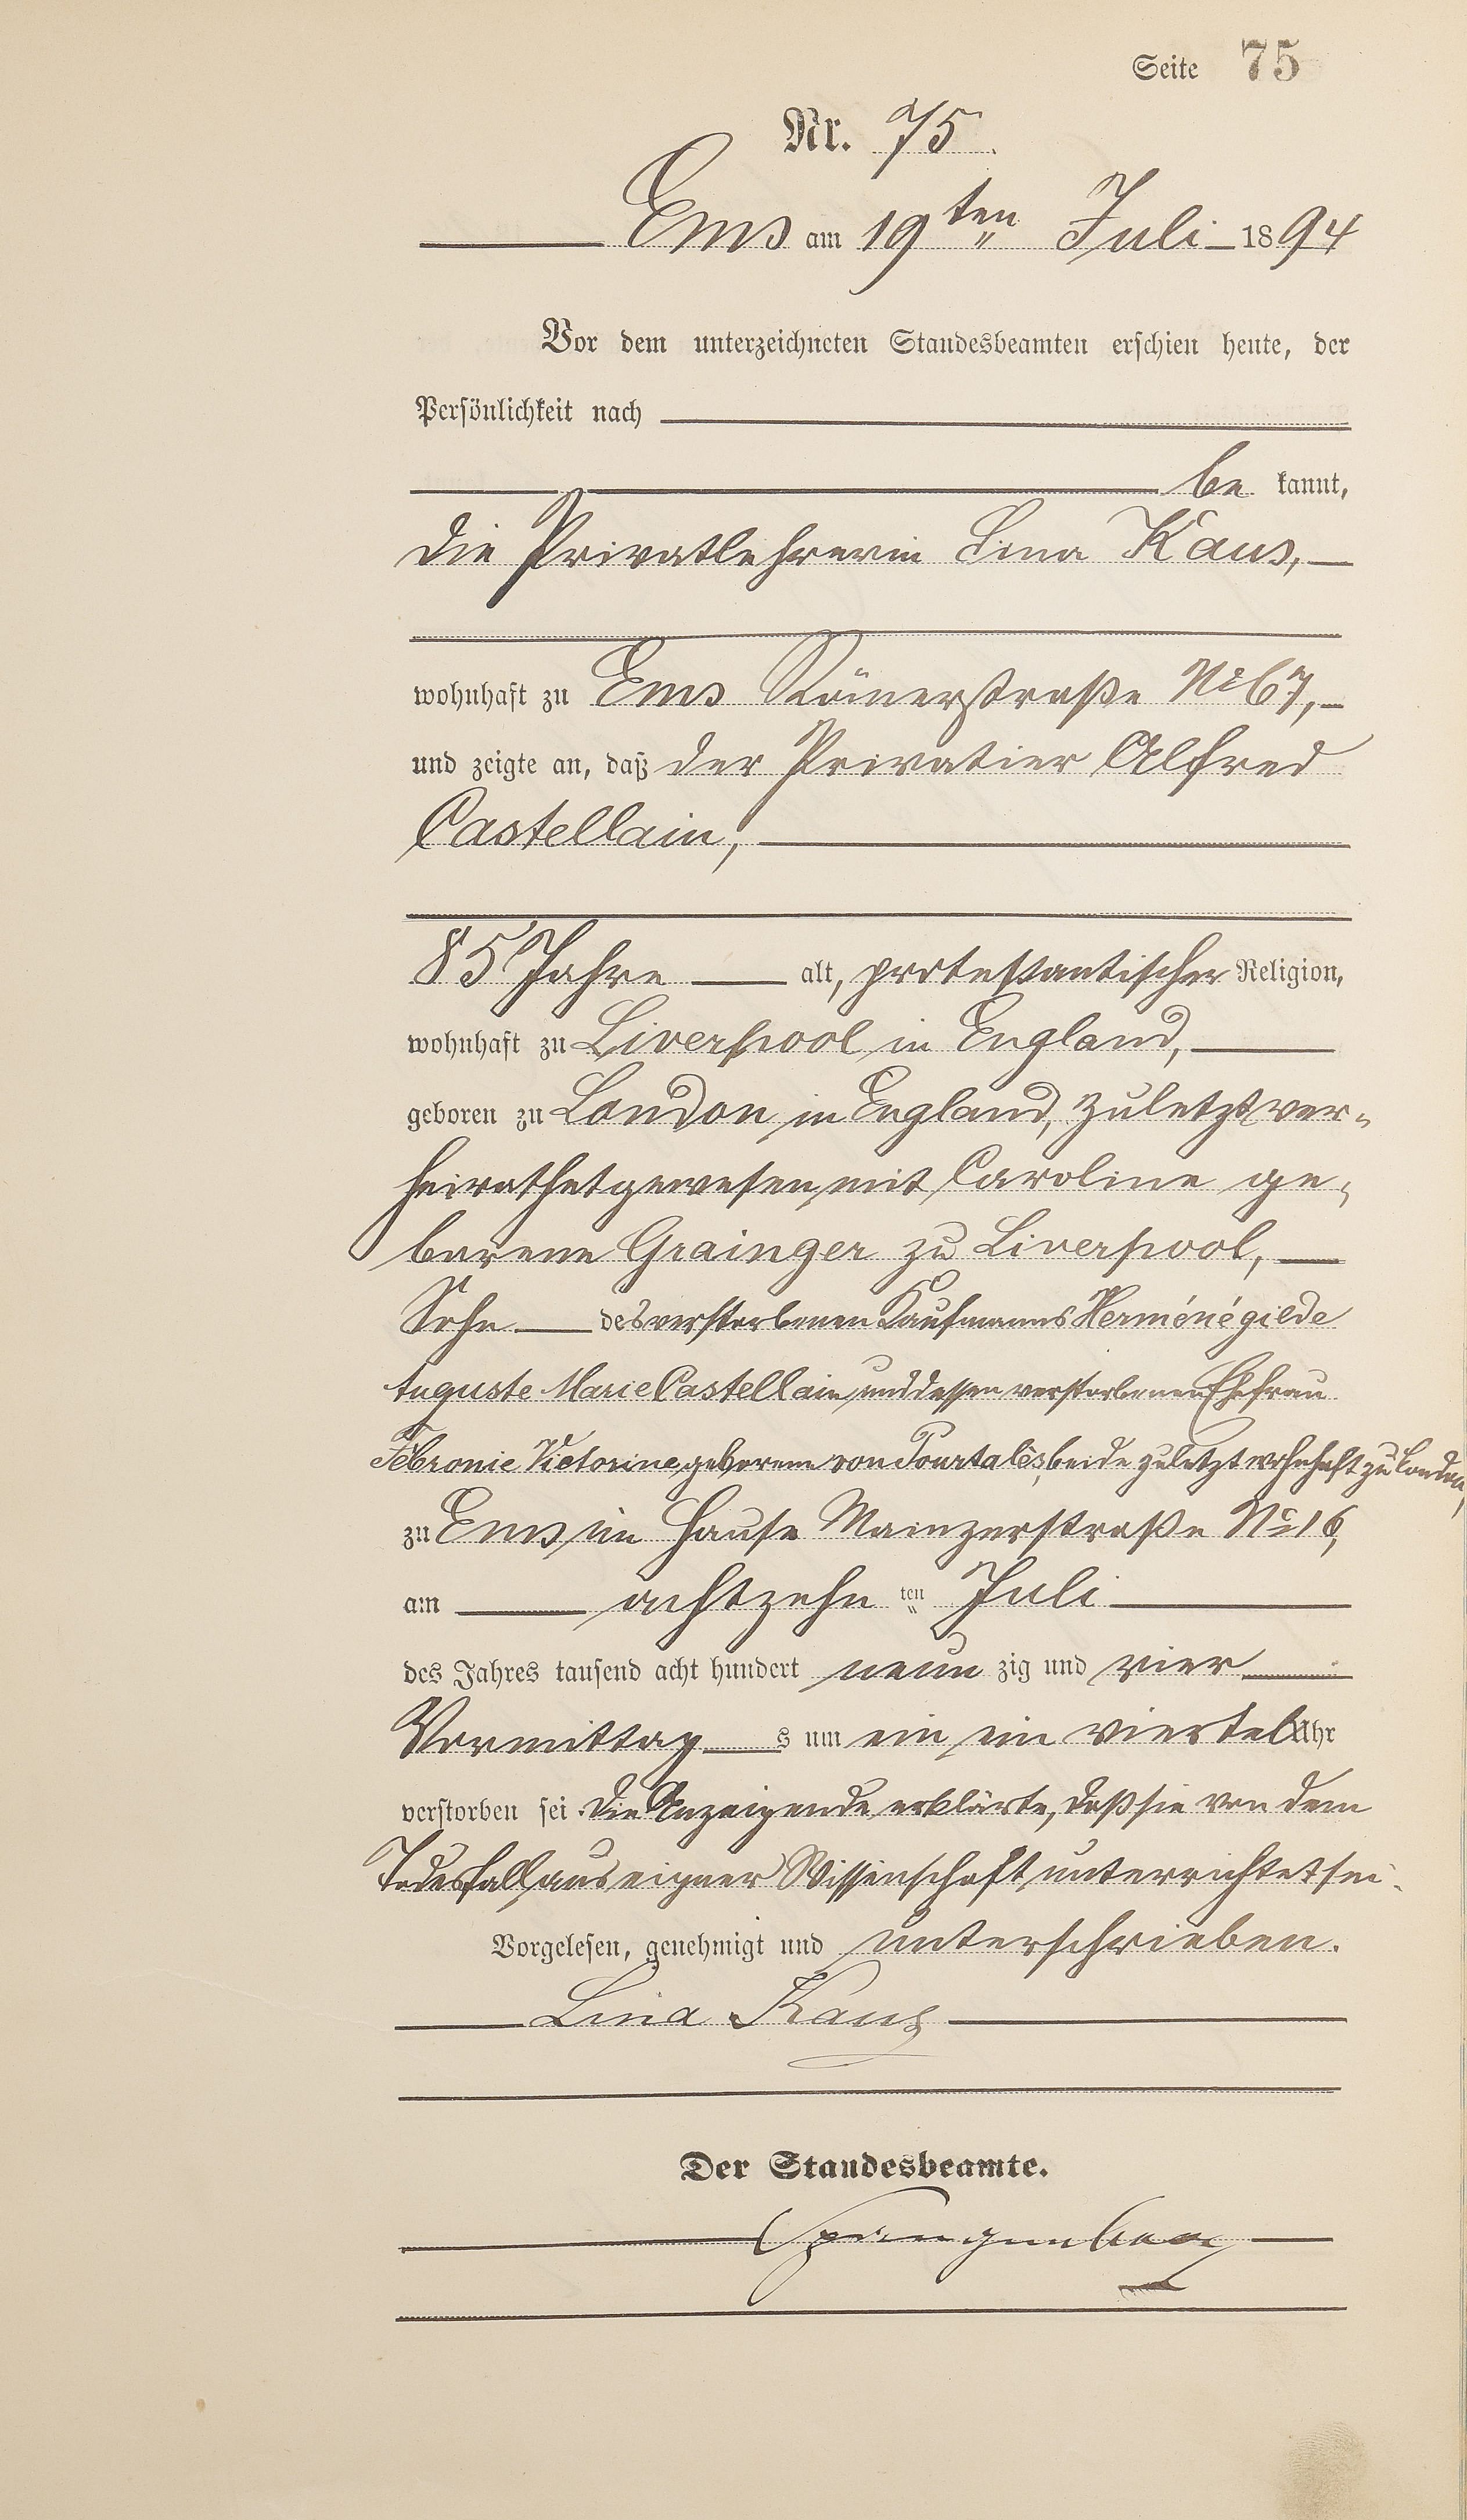 Seite 75
Nr. 75.
Ems am 19ten Juli 1894
Vor dem unterzeichneten Standesbeamten erschien heute, der
Persönlichkeit nach
be kannt,
die Privatlehrerin Lina Kaus,
wohnhaft zu Ems Römerstraße No 67,
und zeigte an, daß der Privatier Alfred
Castellain,
85 Jahre alt, protestantischer Religion,
wohnhaft zu Liverpool in England,
geboren zu London in England, zuletzt ver-
heirathet gewesen mit Caroline ge-
borene Grainger zu Liverpool,
Sohn des verstorbenen Kaufmanns Herménégilde
Auguste Marie Castellain und dessen verstorbenen Ehefrau
Fébronie Victorine geborene von Pourtalès, beide zuletzt wohnhaft zu London,
zu Ems im Hause Mainzerstraße No 16,
am achtzehn ten Juli
des Jahres tausend acht hundert neun zig und vier
Vormittag s um ein ein viertel Uhr
verstorben sei. Die Anzeigende erklärte, daß sie von dem
Todesfall aus eigner Wissenschaft unterrichtet sei.
Vorgelesen, genehmigt und unterschrieben.
Lina Kaus
Der Standesbeamte.
Spangenberg